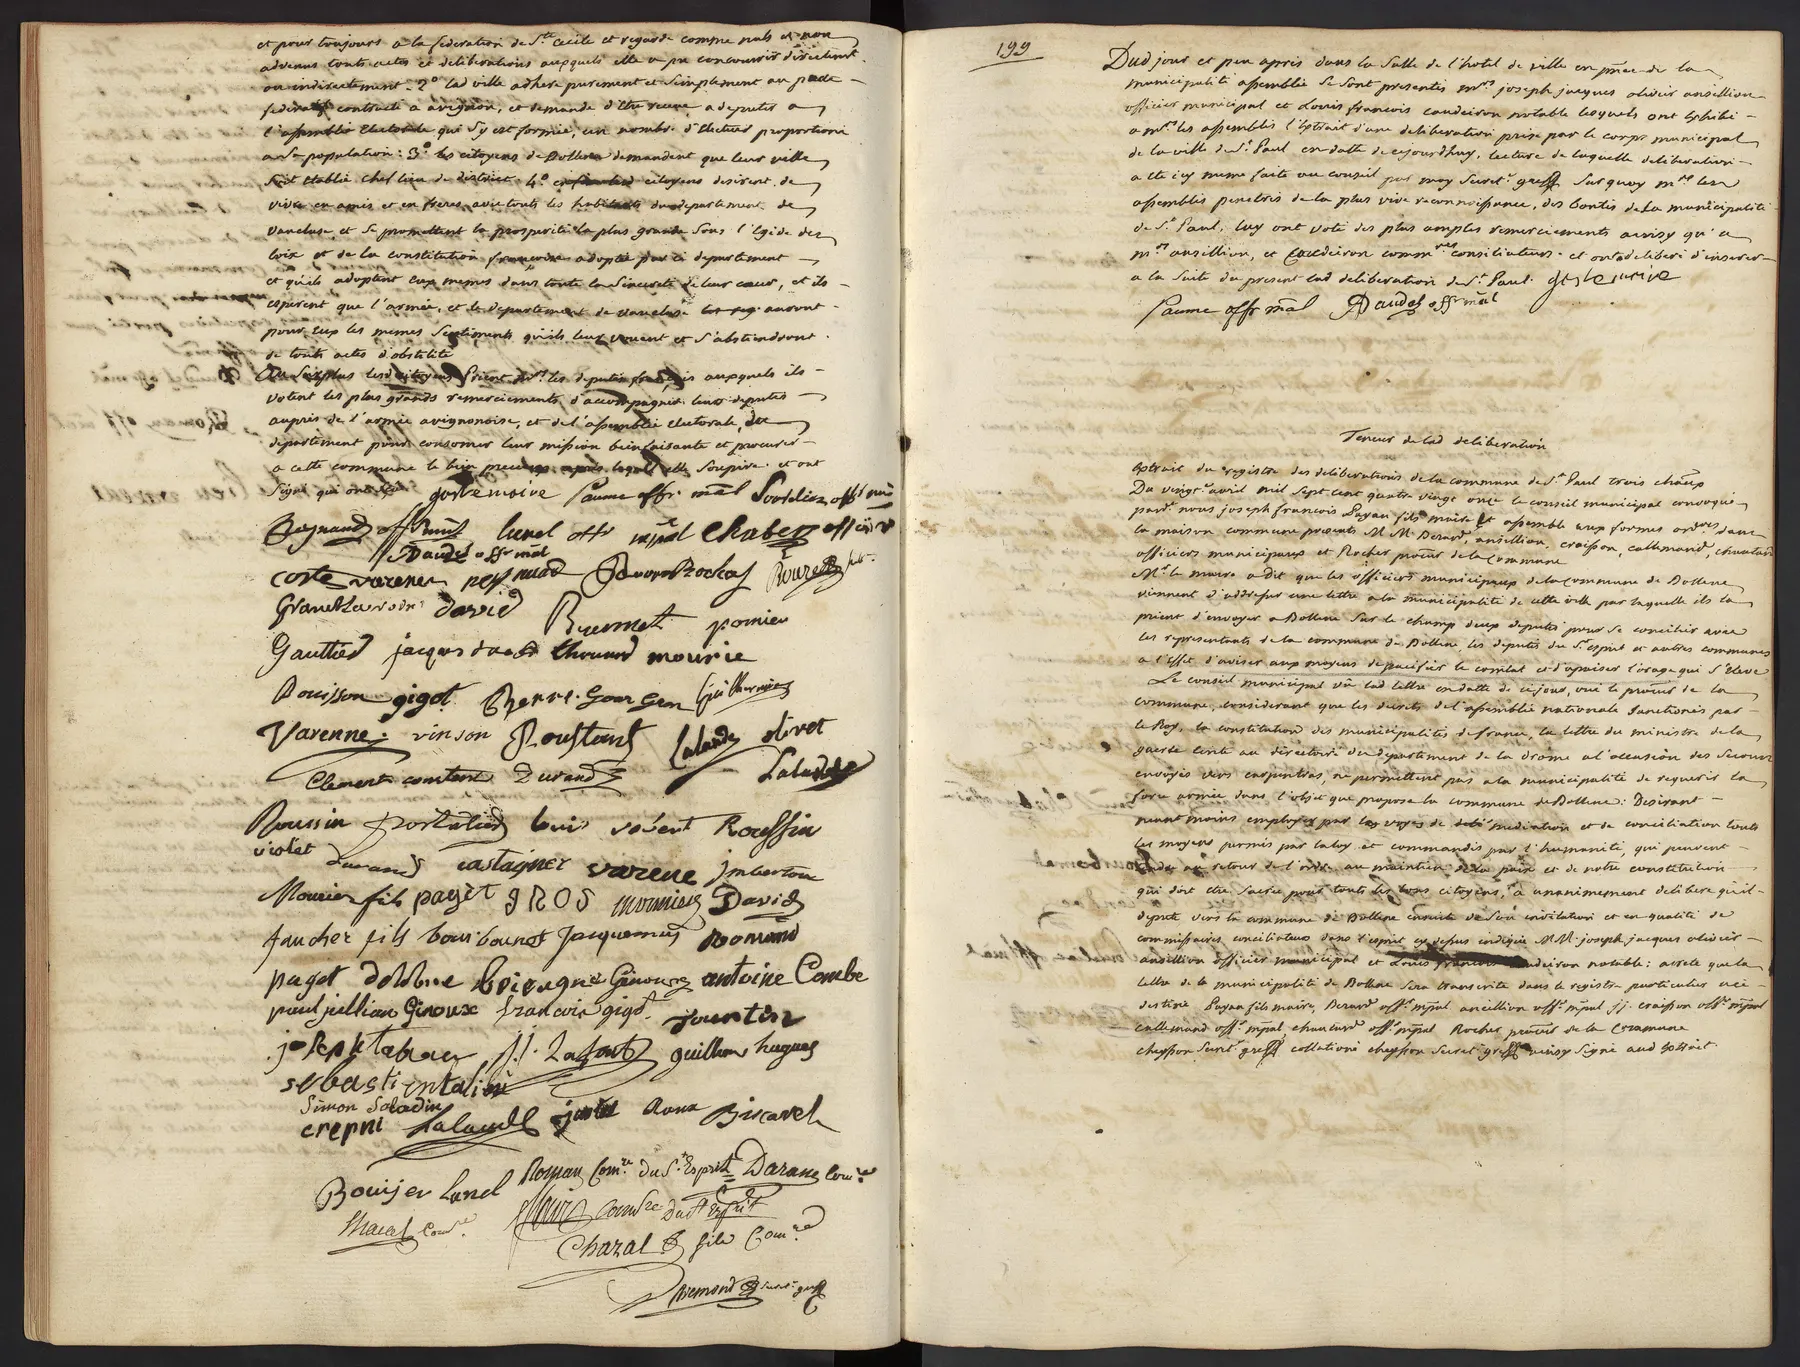 et pour toujours a la federation de Ste Cecile et regarde comme nuls et non
advenus touts actes et deliberations auxquels elle a pu concourrir directemt
ou indirectement. 2° lad ville adhere purement et simplement au pacte
federatif contracté a avignon, et demande d'etre recue a deputer a
l'assemblée electorale qui s'y est formée, un nombre d'Electeurs proportioné
a sa population: 3° les citoyens de Bollene demandent que leur ville
soit etablie chef lieu de district 4° citoyens desirent de
vivre en amis et en freres avec touts les habitants du departement de
vaucluse et se promettent la prosperité la plus grande sous l'Egide des
loix et de la constitution françoise adoptée par ce departement
et qu'ils adoptent eux memes dans toute la sincerité de leur cœur, et ils
esperent que l'armée, et le departement de vaucluse auront
pour eux les memes sentiments qu'ils leur vouent et s'abstiendront
de touts actes d'hostilité
Au surplus lesd citoyens prient Mrs les deputés français auxquels ils
votent les plus grands remerciements d'accompagner leurs deputés
auprès de l'armée avignonoise, et de l'assemblée electorale du
departement pour consomer leur mission bienfaisante et procurer
a cette commune le bien precieux après lequel elle soupire et ont
signé qui ont sçu Saume offr mal
Reynaud lunel offr mpal Chabert
Daudel offr mal
coste varenne peynaud Rochas
david pomier
Gauthier jacques mourie
Bouisson gigot Pierre
Varenne vinson Roustant Lalande olivet
Clement Durand
Roussin louis robert Roussin
violet Durand castagner varene jmberton
Mourier fils paget GROS mounier David
faucher fils Jacquemus Romand
paget antoine Combe
paul jullian Giroux francois gigot
joseph J.J. Lafont guilhon hugues
sebastien
Simon Saladin
crepni Lalande Roux Biscarel
Bouijer Lunel Roman Comre du St Esprit Darane Comre
Comre
Comre du St Esprit
Chazal fils Comre
Aremond secret. greff
199
Dud jour et peu après dans la salle de l'hotel de ville en pnce de la
municipalité assemblée se sont presentés mrs joseph jacques olivier ansillion
officier municipal et Louis francois caudeiron notable lesquels ont exhibé
a mrs les assemblés l'extrait d'une deliberation prise par le corps municipal
de la ville de St Paul en datte de cejourdhuy, lecture de laquelle deliberation
a eté icy meme faite au conseil par moy secret. greff. sur quoy mrs les
assemblés penetrés de la plus vive reconnoissance, des bontés de la municipalité
de St Paul, luy ont voté des plus amples remerciements ainsy qu'a
mrs ansillion, et Caudeiron commres conciliateurs. et ont deliberé d'inserer
a la suite du present lad deliberation de St Paul
Saume offr mal Daudel offr mal
Teneur de lad deliberation
Extrait du registre des deliberations de la commune de St Paul trois chaux
Du vingt avril mil sept cent quatre vingt onze le conseil municipal convoqué
pardt nous joseph francois Payan fils maire et assemblé aux formes ordres dans
la maison commune presents MM Berard, ansillion, craisson, callemand, chautard
officiers municipaux et Rocher procur de la Commune
Mr le maire a dit que les officiers municipaux de la commune de Bollene
viennent d'addresser une lettre a la municipalité de cette ville par laquelle ils la
prient d'envoyer a Bollene sur le champ deux deputés pour se concilier avec
les representants de la commune de Bollene, les deputés du St esprit et autres communes
a l'effet d'aviser aux moyens de pacifier le comtat et d'apaiser l'orage qui s'eleve
Le conseil municipal vû lad lettre en datte de ce jour, oui le procur de la
commune, considerant que les decrets de l'assemblée nationale sanctionés par
le Roy, la constitution des municipalités de france, la lettre du ministre de la
guerre ecrite au directoire du departement de la drome a l'occasion des secours
envoyés vers carpentras, ne permettent pas a la municipalité de requerir la
force armée dans l'objet que propose la commune de Bollene: Desirant
neant moins employer par les voyes de mediation et de conciliation touts
les moyens permis par la loy et commandés par l'humanité, qui peuvent
tendre au retour de l'ordre au maintien de la paix et de notre constitution
qui doit etre sacrée pour touts les bons citoyens, a unanimement deliberé qu'il
deputé vers la commune de Bollene ensuite de son invitation et en qualité de
commissaires conciliateurs dans l'esprit cy dessus indiqué MM. joseph jacques olivier
ansillion officier municipal et Louis francois caudeiron notable: arrete que la
lettre de la municipalité de Bollene sera transcrite dans le registre particulier a ce
destiné Payan fils maire, Berard offr mpal ancillion offr mpal j.j. craisson offr mpal
Callemand offr mpal chautard offr mpal Rocher procur de la Commune
cheysson secret greff collationé cheysson secret greff ainsy signé aud extrait